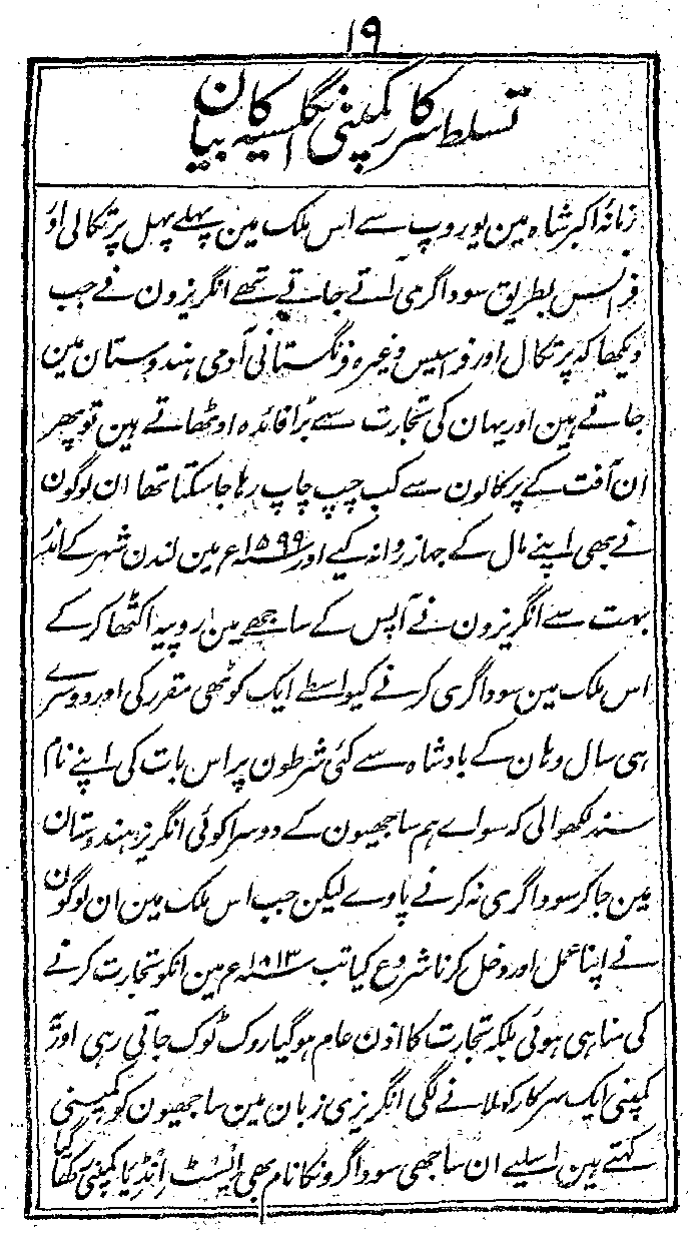 ۱۹
تسلط سرکار کمپنی انگلسیہ کا بیان
زمانۂ اکبر شاہ مین یوروپ سے اس ملک مین پہلے پہل پرتکالی اور
فرانسس بطریق سوداگری آتے جاتے تھے انگریزون نے جب
دیکھا کہ پرتکال اور فراسیس وغیرہ فرنگستانی آدمی ہندوستان مین
جاتے ہین اور یہان کی تجارت سے بڑا فائدہ اوٹھاتے ہین تو پھر
ان آفت کے پرکالون سے کب چپ چاپ رہا جا سکتا تھا ان لوگون
نے بھی اپنے مال کے جہاز روانہ کیے اور ۱۵۹۹ء مین لندن شہر کے اندر
بہت سے انگریزون نے آپس کے ساجھے مین روپیہ اکٹھا کر کے
اس ملک مین سوداگری کرنے کیواسطے ایک کوٹھی مقرر کی اور دوسرے
ہی سال وہان کے بادشاہ سے کئی شرطون پر اس بات کی اپنے نام
سند لکھوالی کہ سواے ہم ساجھیون کے دوسرا کوئی انگریز ہندوستان
مین جا کر سوداگری نہ کرنے پاوے لیکن جب اس ملک مین ان لوگون
نے اپنا عمل اور دخل کرنا شروع کیا تب ۱۸۱۳ء مین انکو تجارت کرنے
کی مناہی ہوئی بلکہ تجارت کا اذن عام ہو گیا روک ٹوک جاتی رہی اور
کمپنی ایک سرکار کہلانے لگی انگریزی زبان مین ساجھیون کو کمپنی
کہتے ہین اسلیے ان ساجھی سوداگرونکا نام بھی ایسٹ انڈیا کمپنی رکھا گیا